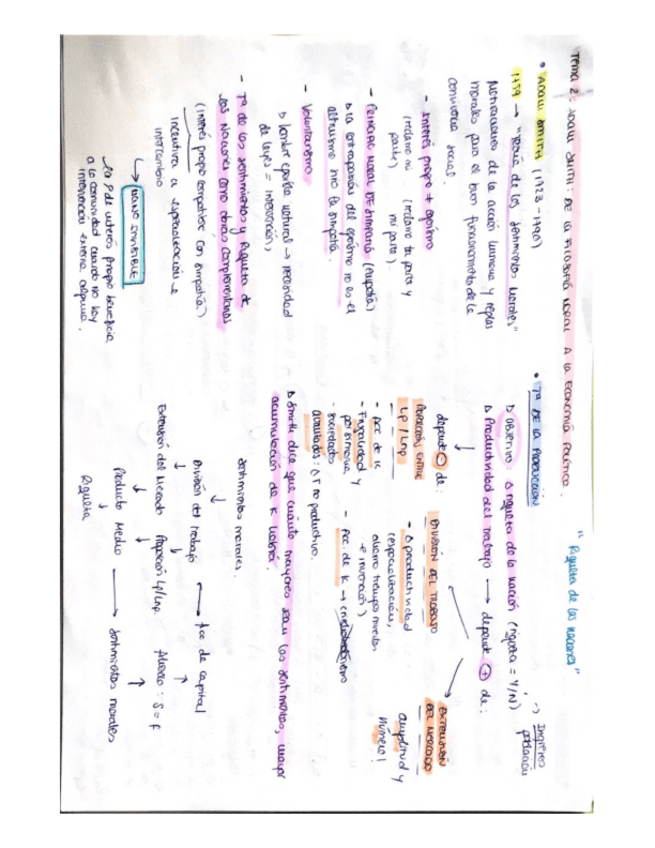 Tema 2: ADAM SMITH: DE LA FILOSOFÍA MORAL A LA ECONOMÍA POLÍTICA.
• ADAM SMITH (1723-1790)
1759 → "Teoría de los sentimientos morales"
Motivaciones de la acción humana y reglas
morales para el buen funcionamiento de la
convivencia social.
- Interés propio ≠ egoísmo
(reclamo mi (reclamo tu parte y
parte) mi parte).
- PRINCIPIO MORAL DE SIMPATÍA (empatía)
↳ la contraposición del egoísmo no es el
altruismo sino la simpatía.
- Voluntarismo
↳ hombre egoísta natural → necesidad
de leyes = intervención
- Tª de los sentimientos y Riqueza de
las Naciones como obras complementarias
(interés propio compatible con simpatía)
Incentiva a especialización e
intercambio
→ MANO INVISIBLE
la p de interés propio beneficia
a la comunidad cuando no hay
intervención externa alguna.
"Riqueza de las naciones"
• Tª DE LA PRODUCCIÓN
→ Ingreso
población
↳ OBJETIVO: Δ riqueza de la nación (riqueza = Y/N)
↳ Productividad del trabajo → depende ⊕ de:
depende ⊕ de: DIVISIÓN DEL TRABAJO EXTENSIÓN
DEL MERCADO
PROPORCIÓN ENTRE
Lp / Lnp
- Δ productividad
(especialización,
ahorro tiempos muertos
e invención)
amplitud y
número
- Acc de K
- Frugalidad y
parsimonia
- Acc. de K →
- sociedades
avanzadas: Δ T no productivo.
↳ Smith dice que cuánto mayores sean los sentimientos, mayor
acumulación de K habrá.
sentimientos morales.
División del trabajo → Acc de capital
Extensión del Mercado Proporción Lp/Lnp. Ahorro: S = f
Producto Medio → sentimientos morales
Riqueza